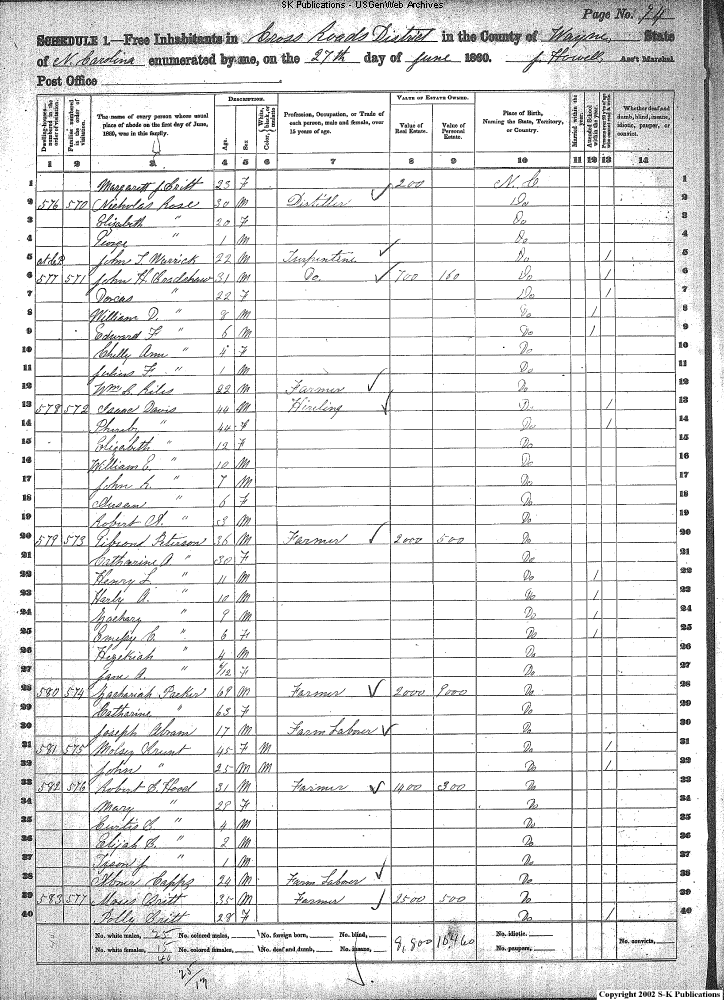 SK Publications - USGenWeb Archives
Page No. 74
SCHEDULE 1.—Free Inhabitants in Cross Roads District in the County of Wayne State
of N. Carolina enumerated by me, on the 27th day of June 1860. J. Howell Ass't Marshal.
Post Office
Dwelling-houses—numbered in the order of visitation.
Families numbered in the order of visitation.
The name of every person whose usual place of abode on the first day of June, 1860, was in this family.
DESCRIPTION.
Age.
Sex.
Color, {White, black, or mulatto.
Profession, Occupation, or Trade of each person, male and female, over 15 years of age.
VALUE OF ESTATE OWNED.
Value of Real Estate.
Value of Personal Estate.
Place of Birth, Naming the State, Territory, or Country.
Married within the year.
Attended School within the year.
Whether deaf and dumb, blind, insane, idiotic, pauper, or convict.
1 2 3 4 5 6 7 8 9 10 11 12 13 14
1 Margarett J. Britt 23 F 200 N. C 1
2 576 570 Nicholas Rose 30 M Distiller Do 2
3 Elizabeth " 20 F Do 3
4 " 1 M Do 4
5 John T Warrick 22 M Turpentine Do / 5
6 577 571 John H. Bradshaw 31 M Do. 700 160 Do / 6
7 Dorcas " 22 F Do / 7
8 William D. " 8 M Do / 8
9 Edward F " 6 M Do / 9
10 Ann " 4 F Do 10
11 Julius F. " 1 M Do 11
12 Wm 22 M Farmer Do 12
13 578 572 Isaac Davis 44 M Hireling Do / 13
14 " 44 F Do / 14
15 Elizabeth " 12 F Do 15
16 William E. " 10 M Do 16
17 John " 7 M Do 17
18 Susan " 6 F Do 18
19 Robert " 3 M Do 19
20 579 573 Peterson 36 M Farmer 2000 500 Do 20
21 Catharine A " 30 F Do 21
22 Henry L. " 11 M Do / 22
23 A. " 10 M Do / 23
24 Zachary " 9 M Do / 24
25 " 6 F Do / 25
26 Hezekiah " 4 M Do 26
27 Jane A. " F Do 27
28 580 574 Zachariah 69 M Farmer 2000 9000 Do 28
29 Catharine " 63 F Do 29
30 Joseph Abram 17 M Farm Labourer Do 30
31 581 575 45 F M Do / 31
32 John " 25 M M Do / 32
33 582 576 Robert Hood 31 M Farmer 1400 300 Do 33
34 Mary " 28 F Do 34
35 Curtis " 4 M Do 35
36 Elijah " 2 M Do 36
37 J " 1 M Do 37
38 Abner Capps 24 M Farm Labourer Do 38
39 583 577 Moses Britt 35 M Farmer 2500 500 Do 39
40 Polly Britt 28 F Do / 40
No. white males, 25 No. colored males, No. foreign born, No. blind, 8,800 10460 No. idiotic.
No. white females, 15 No. colored females, No. deaf and dumb, No. insane, No. paupers, No. convicts,
40
25/
Copyright 2002 S-K Publications